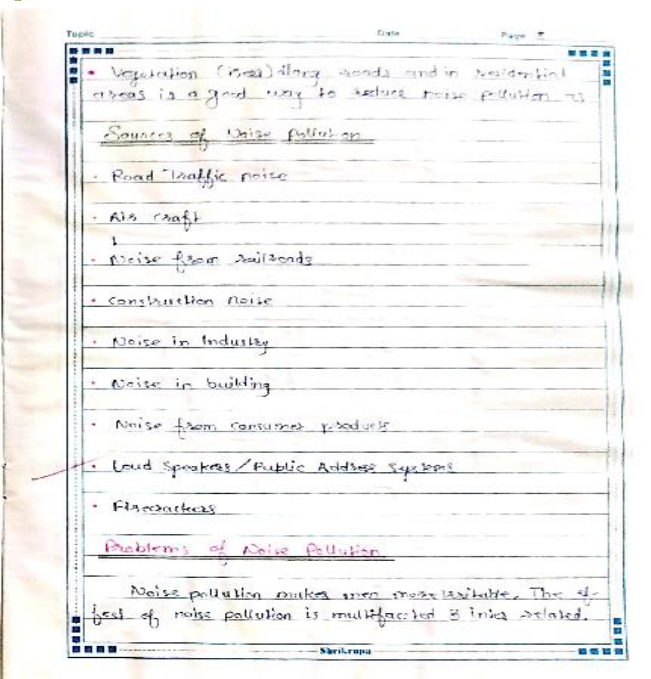 Topic Date Page
• Vegetation (Trees) along roads and in residential
areas is a good way to reduce noise pollution
Sources of Noise Pollution
• Road Traffic noise
• Air craft
• Noise from railroads
• Construction noise
• Noise in Industry
• Noise in building
• Noise from consumer products
• Loud Speakers / Public Address Systems
• Firecrackers
Problems of Noise Pollution
Noise pollution makes men more irritable. The ef-
fect of noise pollution is multifaceted & inter related.
Shrikrupa